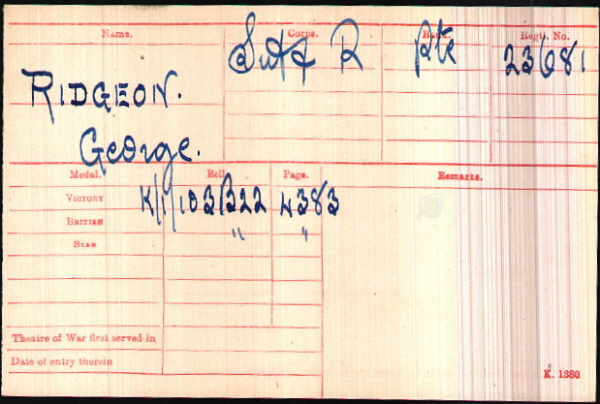 Name. Corps. Rank. Regtl. No.
Suff R Pte 23681
RIDGEON.
George.
Medal. Roll. Page. Remarks.
VICTORY K/1/103B22 4383
BRITISH " "
STAR
Theatre of War first served in
Date of entry therein
K. 1380